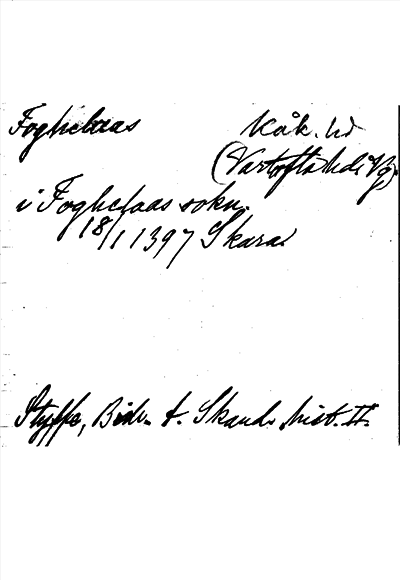 Foghelaas Kåk. hd
(Vartofta hd. Vg).
i Foghelaas sokn.
18/1 1397 Skara
Styffe, Bidr. t. Skand. hist. II.